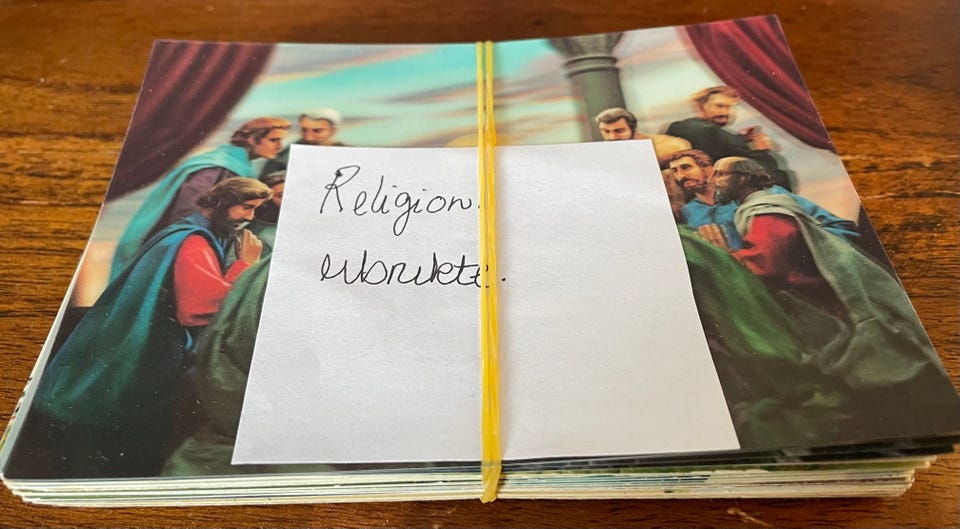 Religion.
ubrukte.